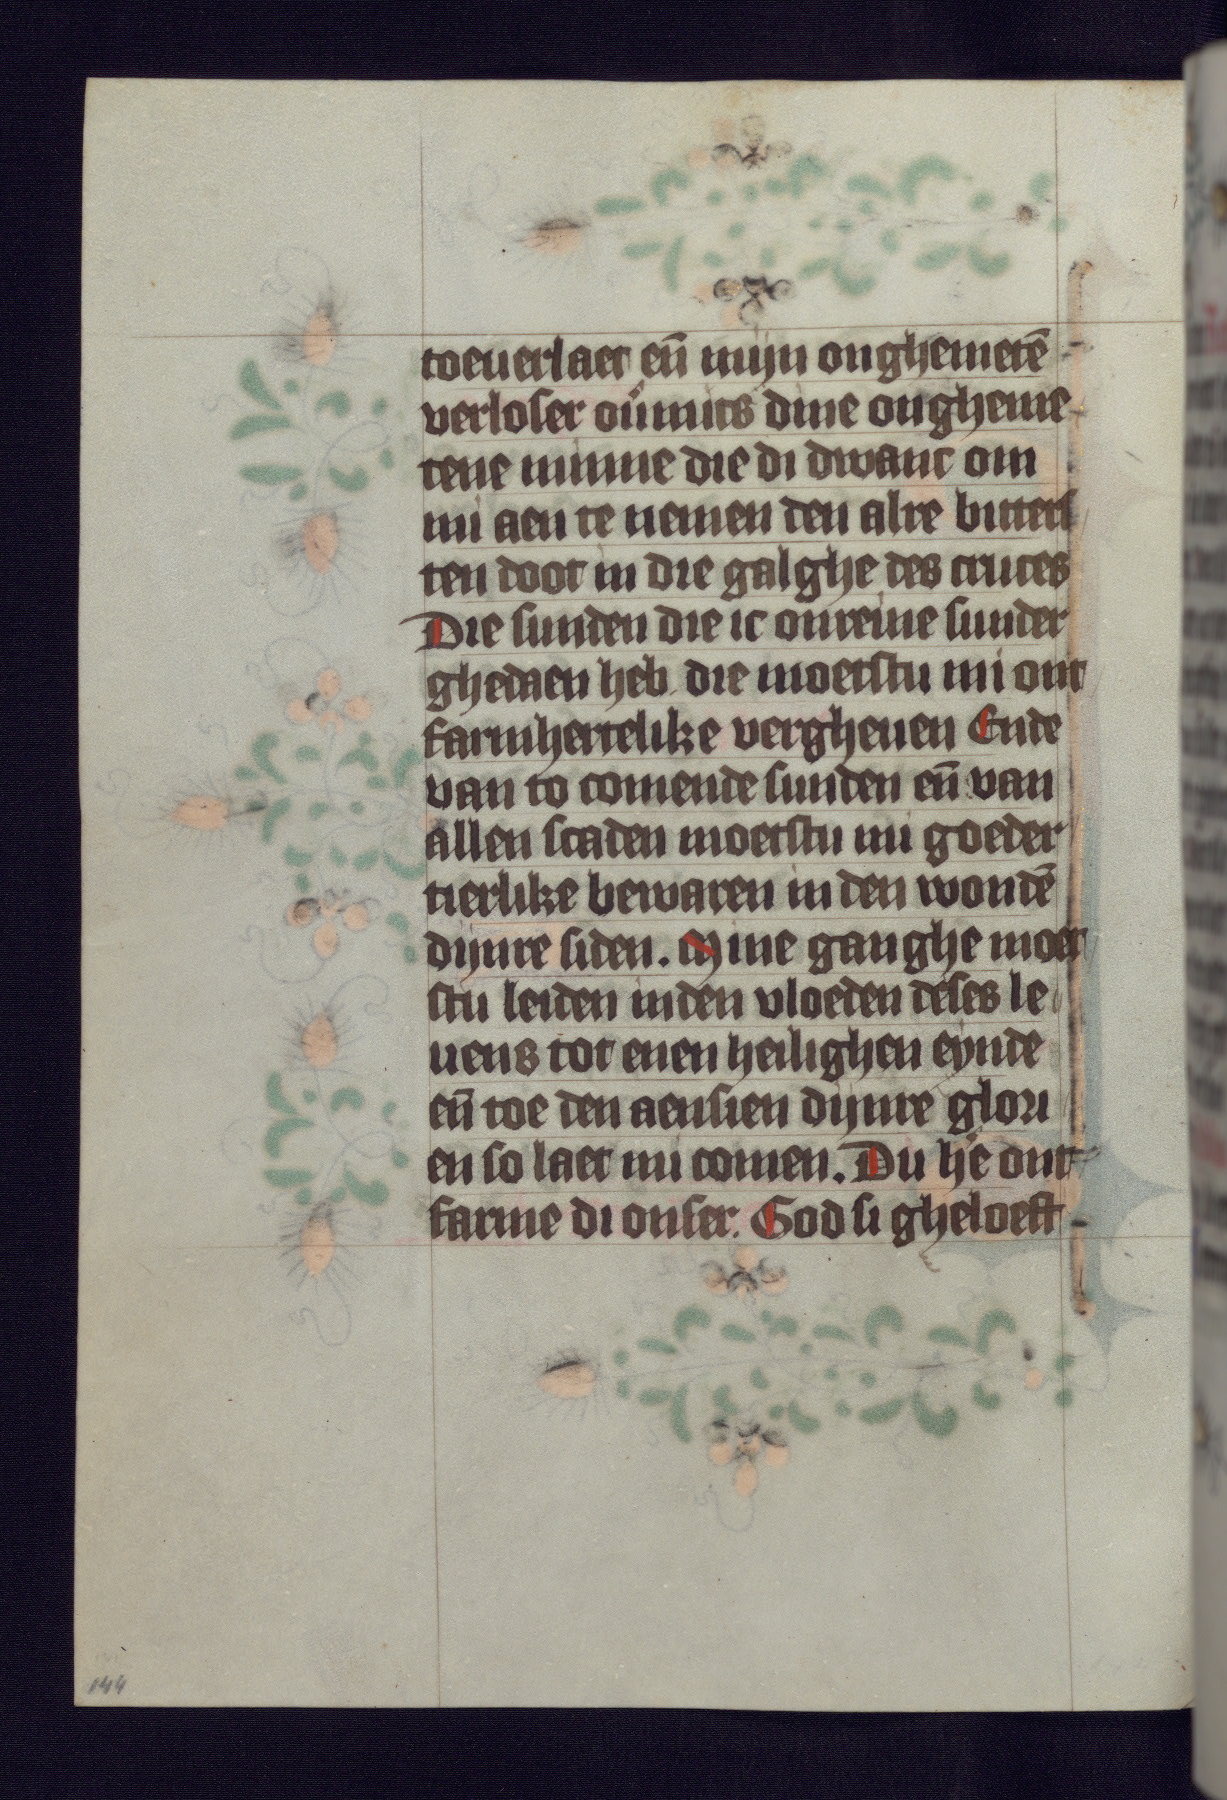 toeuerlaet eñ mijn onghemetē
verloser ou̅mits dine ongheme
tene minne die di dwanc om
mi aen te nemen den alre bitters
ten doot in die galghe des cruces
Die sunden die ic onreine sunder
ghedaen heb die moetstu mi ont
farmhertelike vergheuen Ende
van to comende sunden eñ van
allen scaden moetstu mi goeder
tierlike bewaren in den wondē
dijnre siden. Mine ganghe moet
stu leiden inden vloeden deses le
uens tot enen heilighen eynde
eñ toe den aensien dijnre glori
en so laet mi comen. Du hē ont
farme di onser. God si gheloeft
144